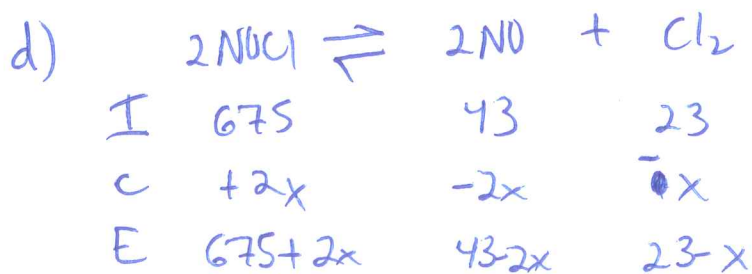 d) 2NOCl ⇌ 2NO + Cl2
I 675 43 23
C +2x -2x -x
E 675+2x 43-2x 23-x